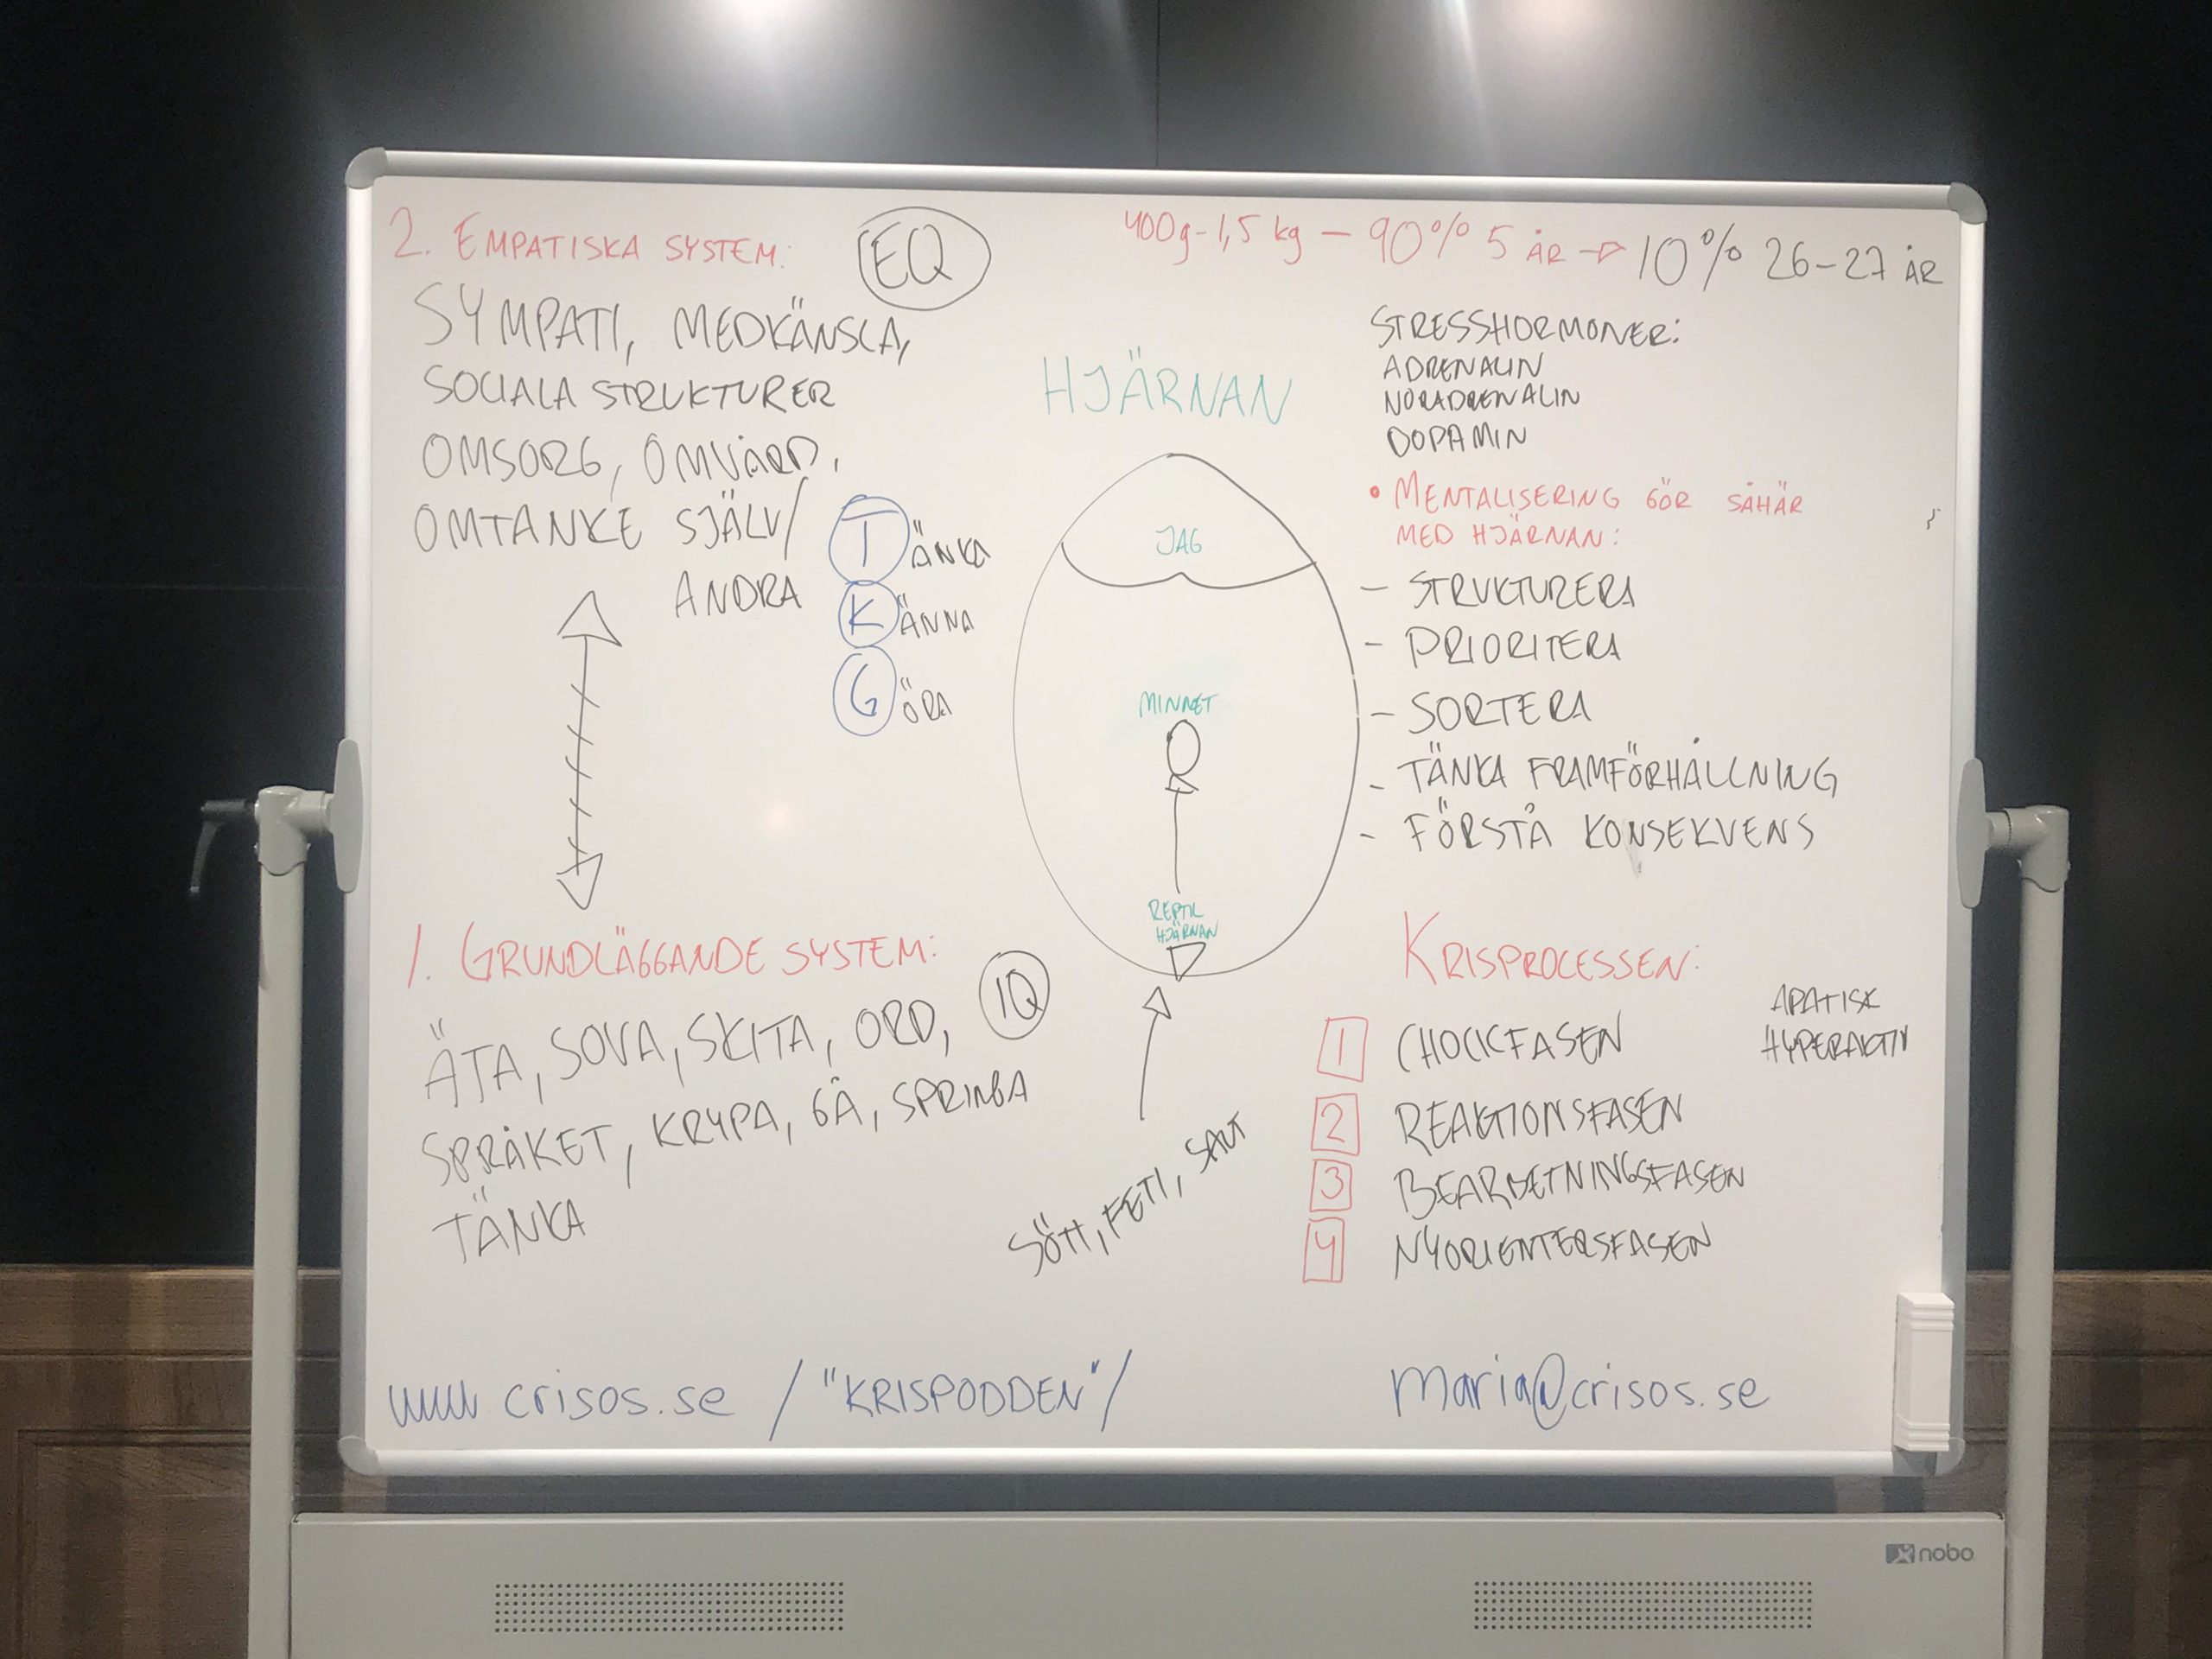 2. EMPATISKA SYSTEM:
EQ
SYMPATI, MEDKÄNSLA,
SOCIALA STRUKTURER
OMSORG, OMVÅRD,
OMTANKE SJÄLV/
ANDRA
TÄNKA
KÄNNA
GÖRA
1. GRUNDLÄGGANDE SYSTEM:
IQ
ÄTA, SOVA, SKITA, ORD,
SPRÅKET, KRYPA, GÅ, SPRINGA
TÄNKA
400g-1,5 kg — 90% 5 ÅR → 10% 26-27 ÅR
HJÄRNAN
JAG
MINNET
REPTIL
HJÄRNAN
SÖTT, FETT, SALT
STRESSHORMONER:
ADRENALIN
NORADRENALIN
DOPAMIN
• MENTALISERING GÖR SÅHÄR
MED HJÄRNAN:
- STRUKTURERA
- PRIORITERA
- SORTERA
- TÄNKA FRAMFÖRHÅLLNING
- FÖRSTÅ KONSEKVENS
KRISPROCESSEN:
1 CHOCKFASEN
APATISK
HYPERAKTIV
2 REAKTIONSFASEN
3 BEARBETNINGSFASEN
4 NYORIENTERSFASEN
www crisos.se / "KRISPODDEN" /
maria@crisos.se
nobo